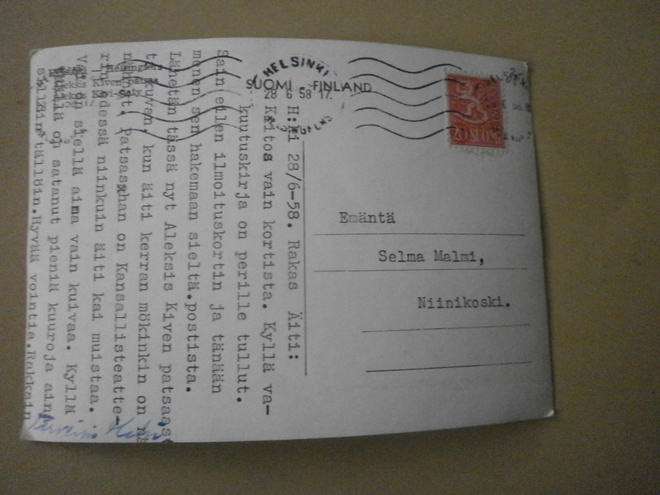 HELSINKI
SUOMI - FINLAND
28 6 58 17
H:ki 28/6-58. Rakas Äiti:
Kiitos vain kortista. Kyllä va-
kuutuskirja on perille tullut.
Sain eilen ilmoituskortin ja tänään
menen sen hakemaan sieltä postista.
Lähetän tässä nyt Aleksis Kiven patsaas
kuvan, kun äiti kerran mökinkin on
Patsashan on Kansallisteatte-
edessä niinkuin äiti kai muistaa.
siellä aina vain kuivaa. Kyllä
on satanut pieniä kuuroja ain
tällöin. Hyvää vointia. Rakkain
terveisin
Emäntä
Selma Malmi,
Niinikoski.